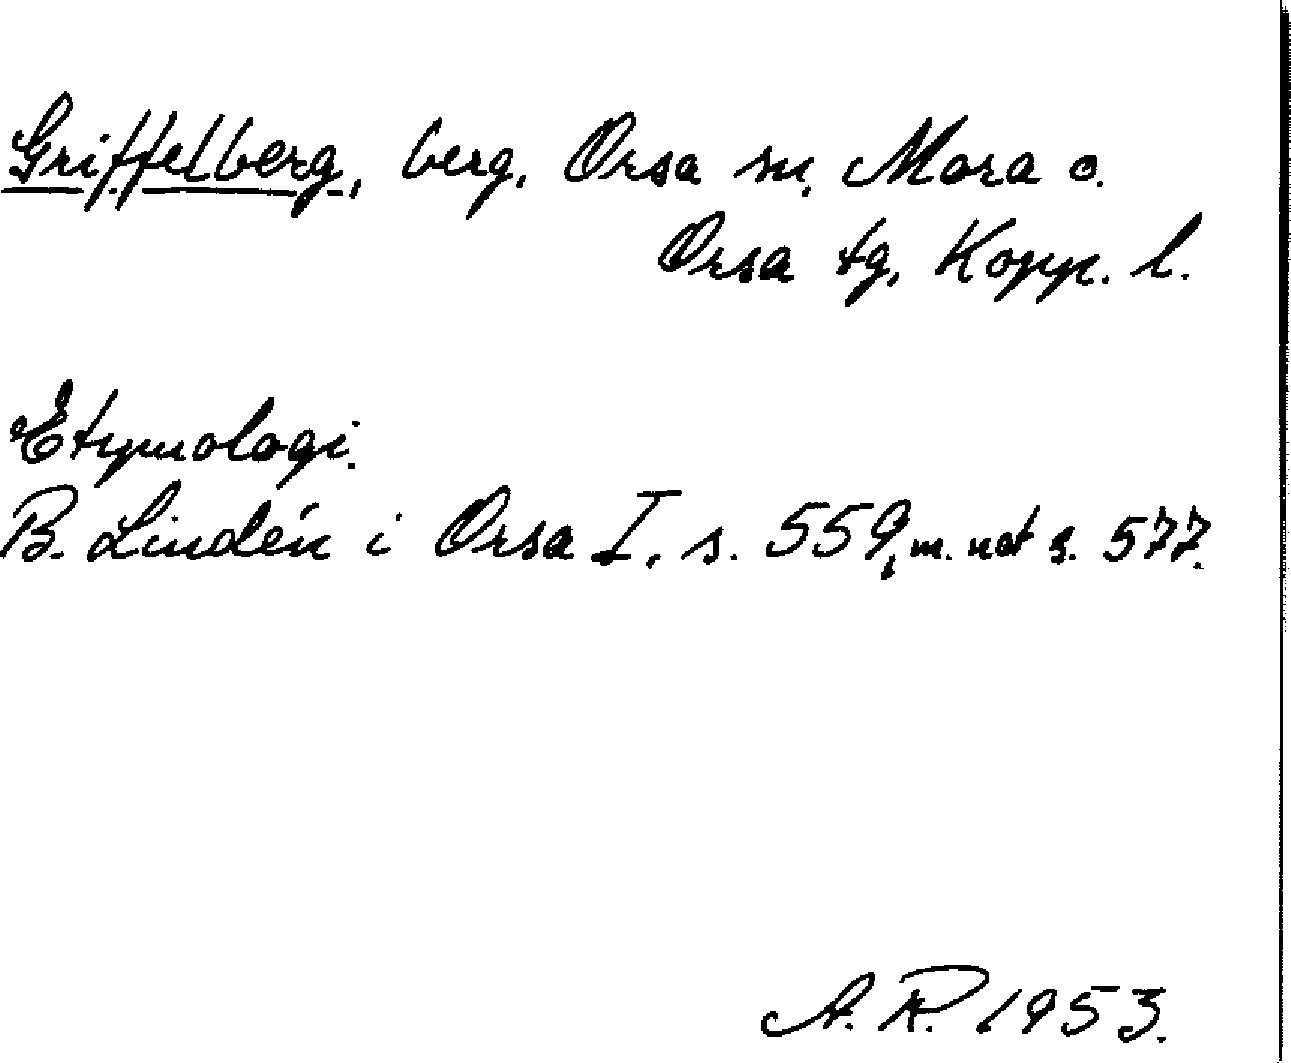 Griffelberg, berg, Orsa sn, Mora o.
Orsa tg, Kopp. l.
Etymologi.
B. Lindén i Orsa I, s. 559, m. not s. 577.
A. R. 1953.